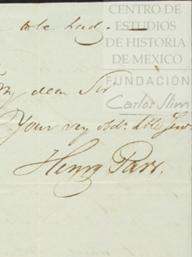 to be had. —
CENTRO DE
ESTUDIOS
DE HISTORIA
DE MEXICO
FUNDACIÓN
Carlos Slim
My dear Sir
Your very Obt.
Henry Parr.